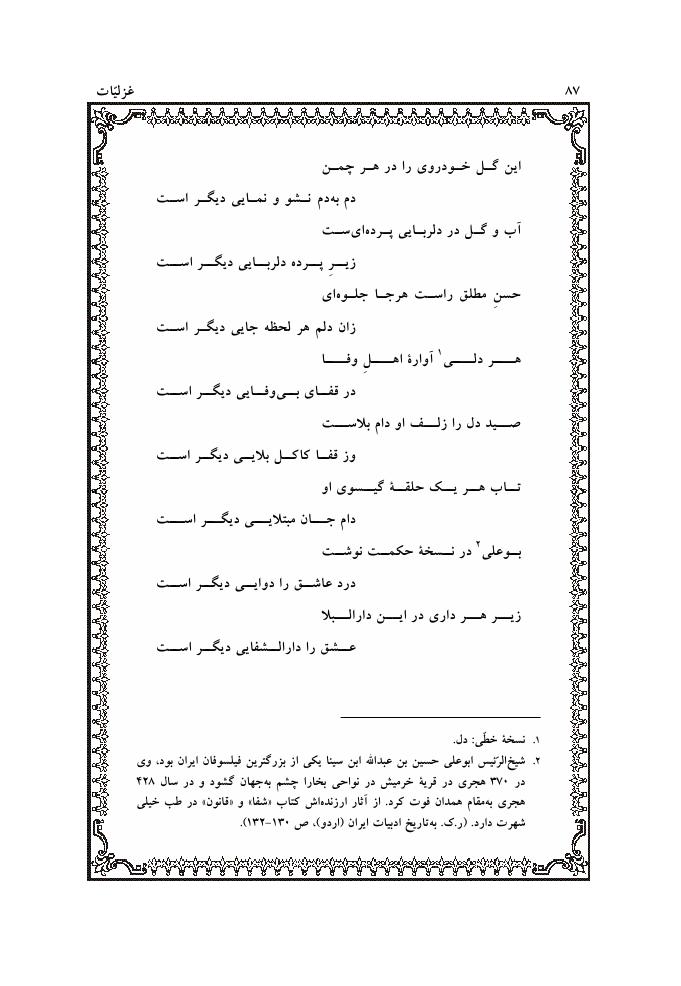 ۸۷ غزلیّات
این گل خودروی را در هر چمن
دم به‌دم نشو و نمایی دیگر است
آب و گل در دلربایی پرده‌ای‌ست
زیرِ پرده دلربایی دیگر است
حسنِ مطلق راست هرجا جلوه‌ای
زان دلم هر لحظه جایی دیگر است
هر دلی۱ آوارهٔ اهلِ وفا
در قفای بی‌وفایی دیگر است
صید دل را زلف او دام بلاست
وز قفا کاکل بلایی دیگر است
تاب هر یک حلقهٔ گیسوی او
دام جان مبتلایی دیگر است
بوعلی۲ در نسخهٔ حکمت نوشت
درد عاشق را دوایی دیگر است
زیر هر داری در این دارالبلا
عشق را دارالشفایی دیگر است
۱. نسخهٔ خطّی: دل.
۲. شیخ‌الرّئیس ابوعلی حسین بن عبدالله ابن سینا یکی از بزرگترین فیلسوفان ایران بود، وی
در ۳۷۰ هجری در قریهٔ خرمیش در نواحی بخارا چشم به‌جهان گشود و در سال ۴۲۸
هجری به‌مقام همدان فوت کرد. از آثار ارزنده‌اش کتاب «شفا» و «قانون» در طب خیلی
شهرت دارد. (ر.ک. به‌تاریخ ادبیات ایران (اردو)، ص ۱۳۰-۱۳۲).